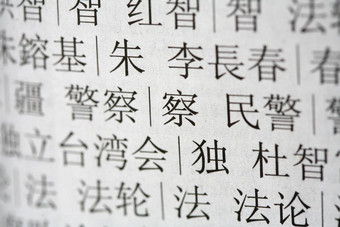 智 | 智 红智 | 智 法轮
朱鎔基 | 朱 李長春 | 春
疆 警察 | 察 民警 |
独立台湾会 | 独 杜智
| 法 法轮 | 法 法论 |